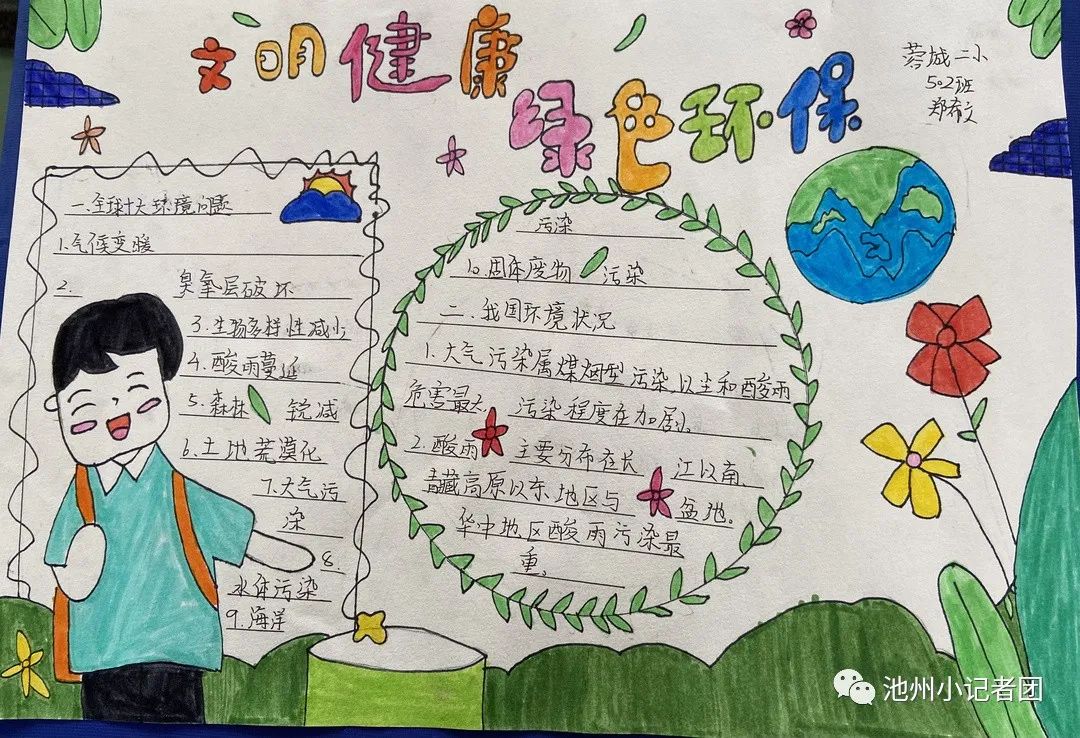 文明健康
绿色环保
蓉城二小
502班
郑希文
一.全球十大环境问题
1.气候变暖
2. 臭氧层破坏
3.生物多样性减少
4.酸雨蔓延
5.森林 锐减
6.土地荒漠化
7.大气污
染
8.
水体污染
9.海洋
污染
10.固体废物 污染
二.我国环境状况
1.大气污染属煤烟型污染,以尘和酸雨
危害最大, 污染程度在加剧。
2.酸雨 主要分布在长 江以南、
青藏高原以东地区与 盆地。
华中地区酸雨污染最
重。
池州小记者团